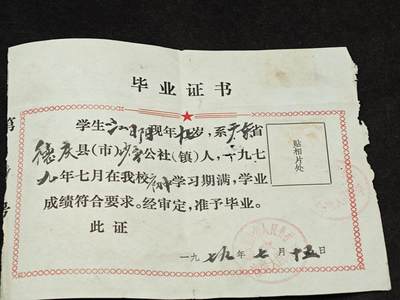 毕业证书
学生 现年 岁,系广东省
德庆县(市) 公社(镇)人,一九七
九年七月在我校 学习期满,学业
成绩符合要求。经审定,准予毕业。
此证
贴相片处
一九七九年七月十五日
第
号